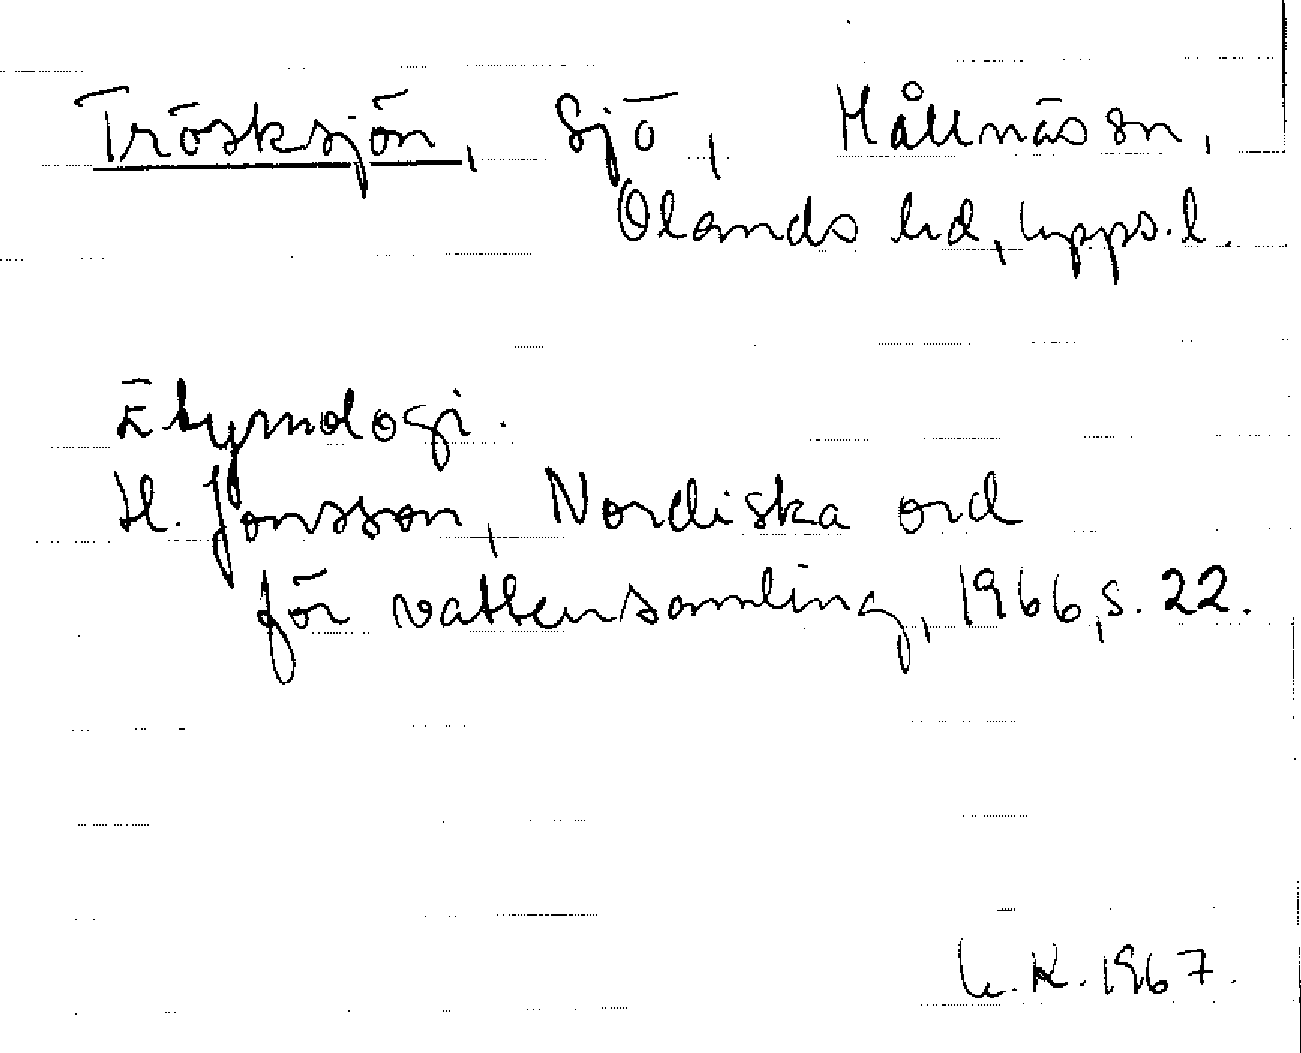 Trösksjön, sjö, Hållnäs sn,
Olands hd, Upps. l.
Etymologi.
H. Jonsson, Nordiska ord
för vattensamling, 1966, s. 22.
L. K. 1967.